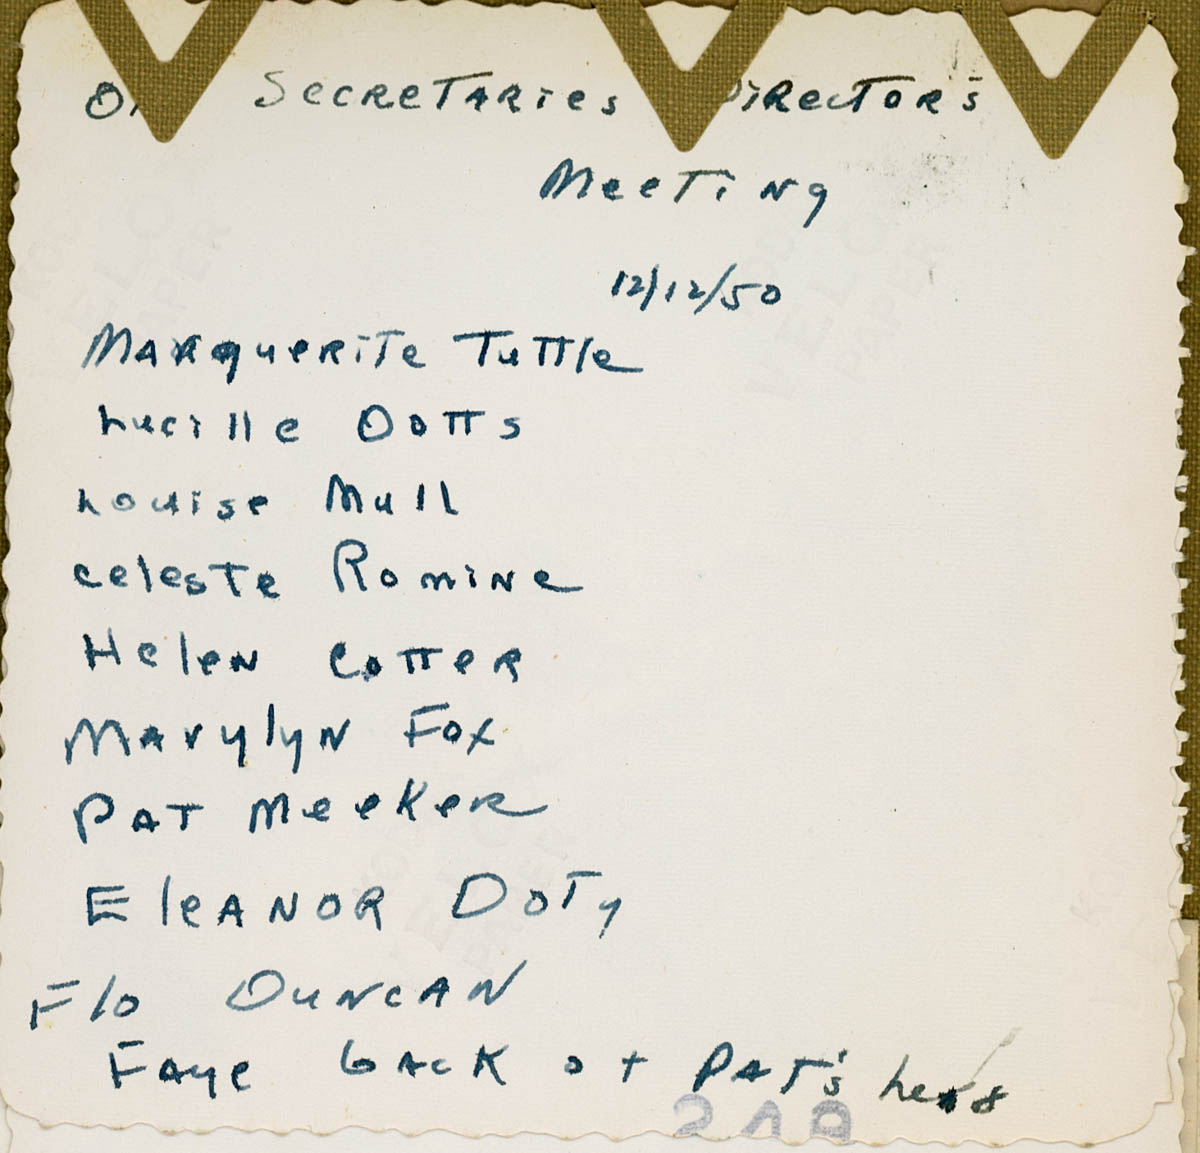 Secretaries Director's
Meeting
12/12/50
Marguerite Tuttle
Lucille Ootts
Louise Mull
celeste Romine
Helen Cotter
Marylyn Fox
Pat Meeker
Eleanor Doty
Flo Duncan
Faye back of Pat's head